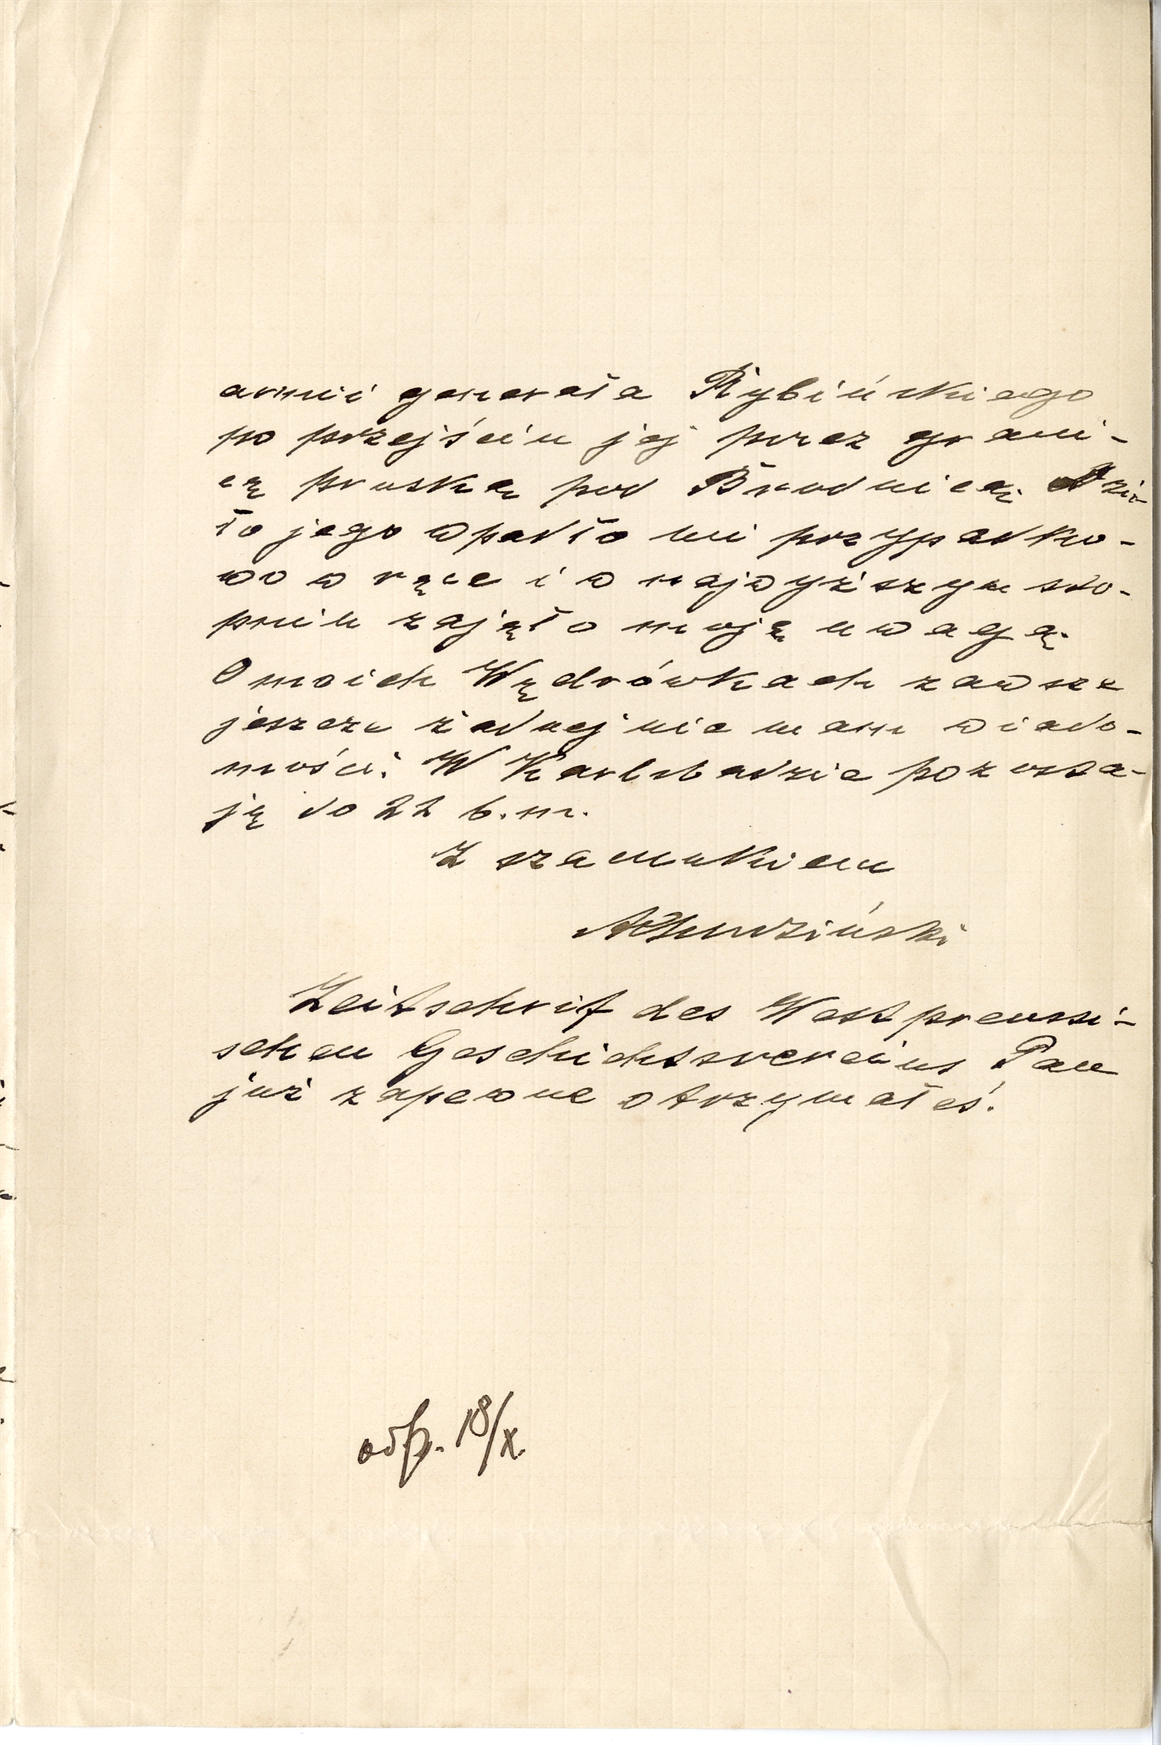 armii generała Rybińskiego
po przejściu jej przez grani-
cę pruską pod Brodnicą. Dzie-
ło jego wpadło mi przypadko-
wo w ręce i w najwyższym sto-
pniu zajęło moję uwagę.
O moich Wędrówkach zawsze
jeszcze żadnej nie mam wiado-
mości. W Karlsbadzie pozosta-
ję do 22 b. m.
Z szacunkiem
Zeitschrift des Westpreussi-
schen Geschichtsvereins Pan
już zapewne otrzymałeś.
odp. 18/X.